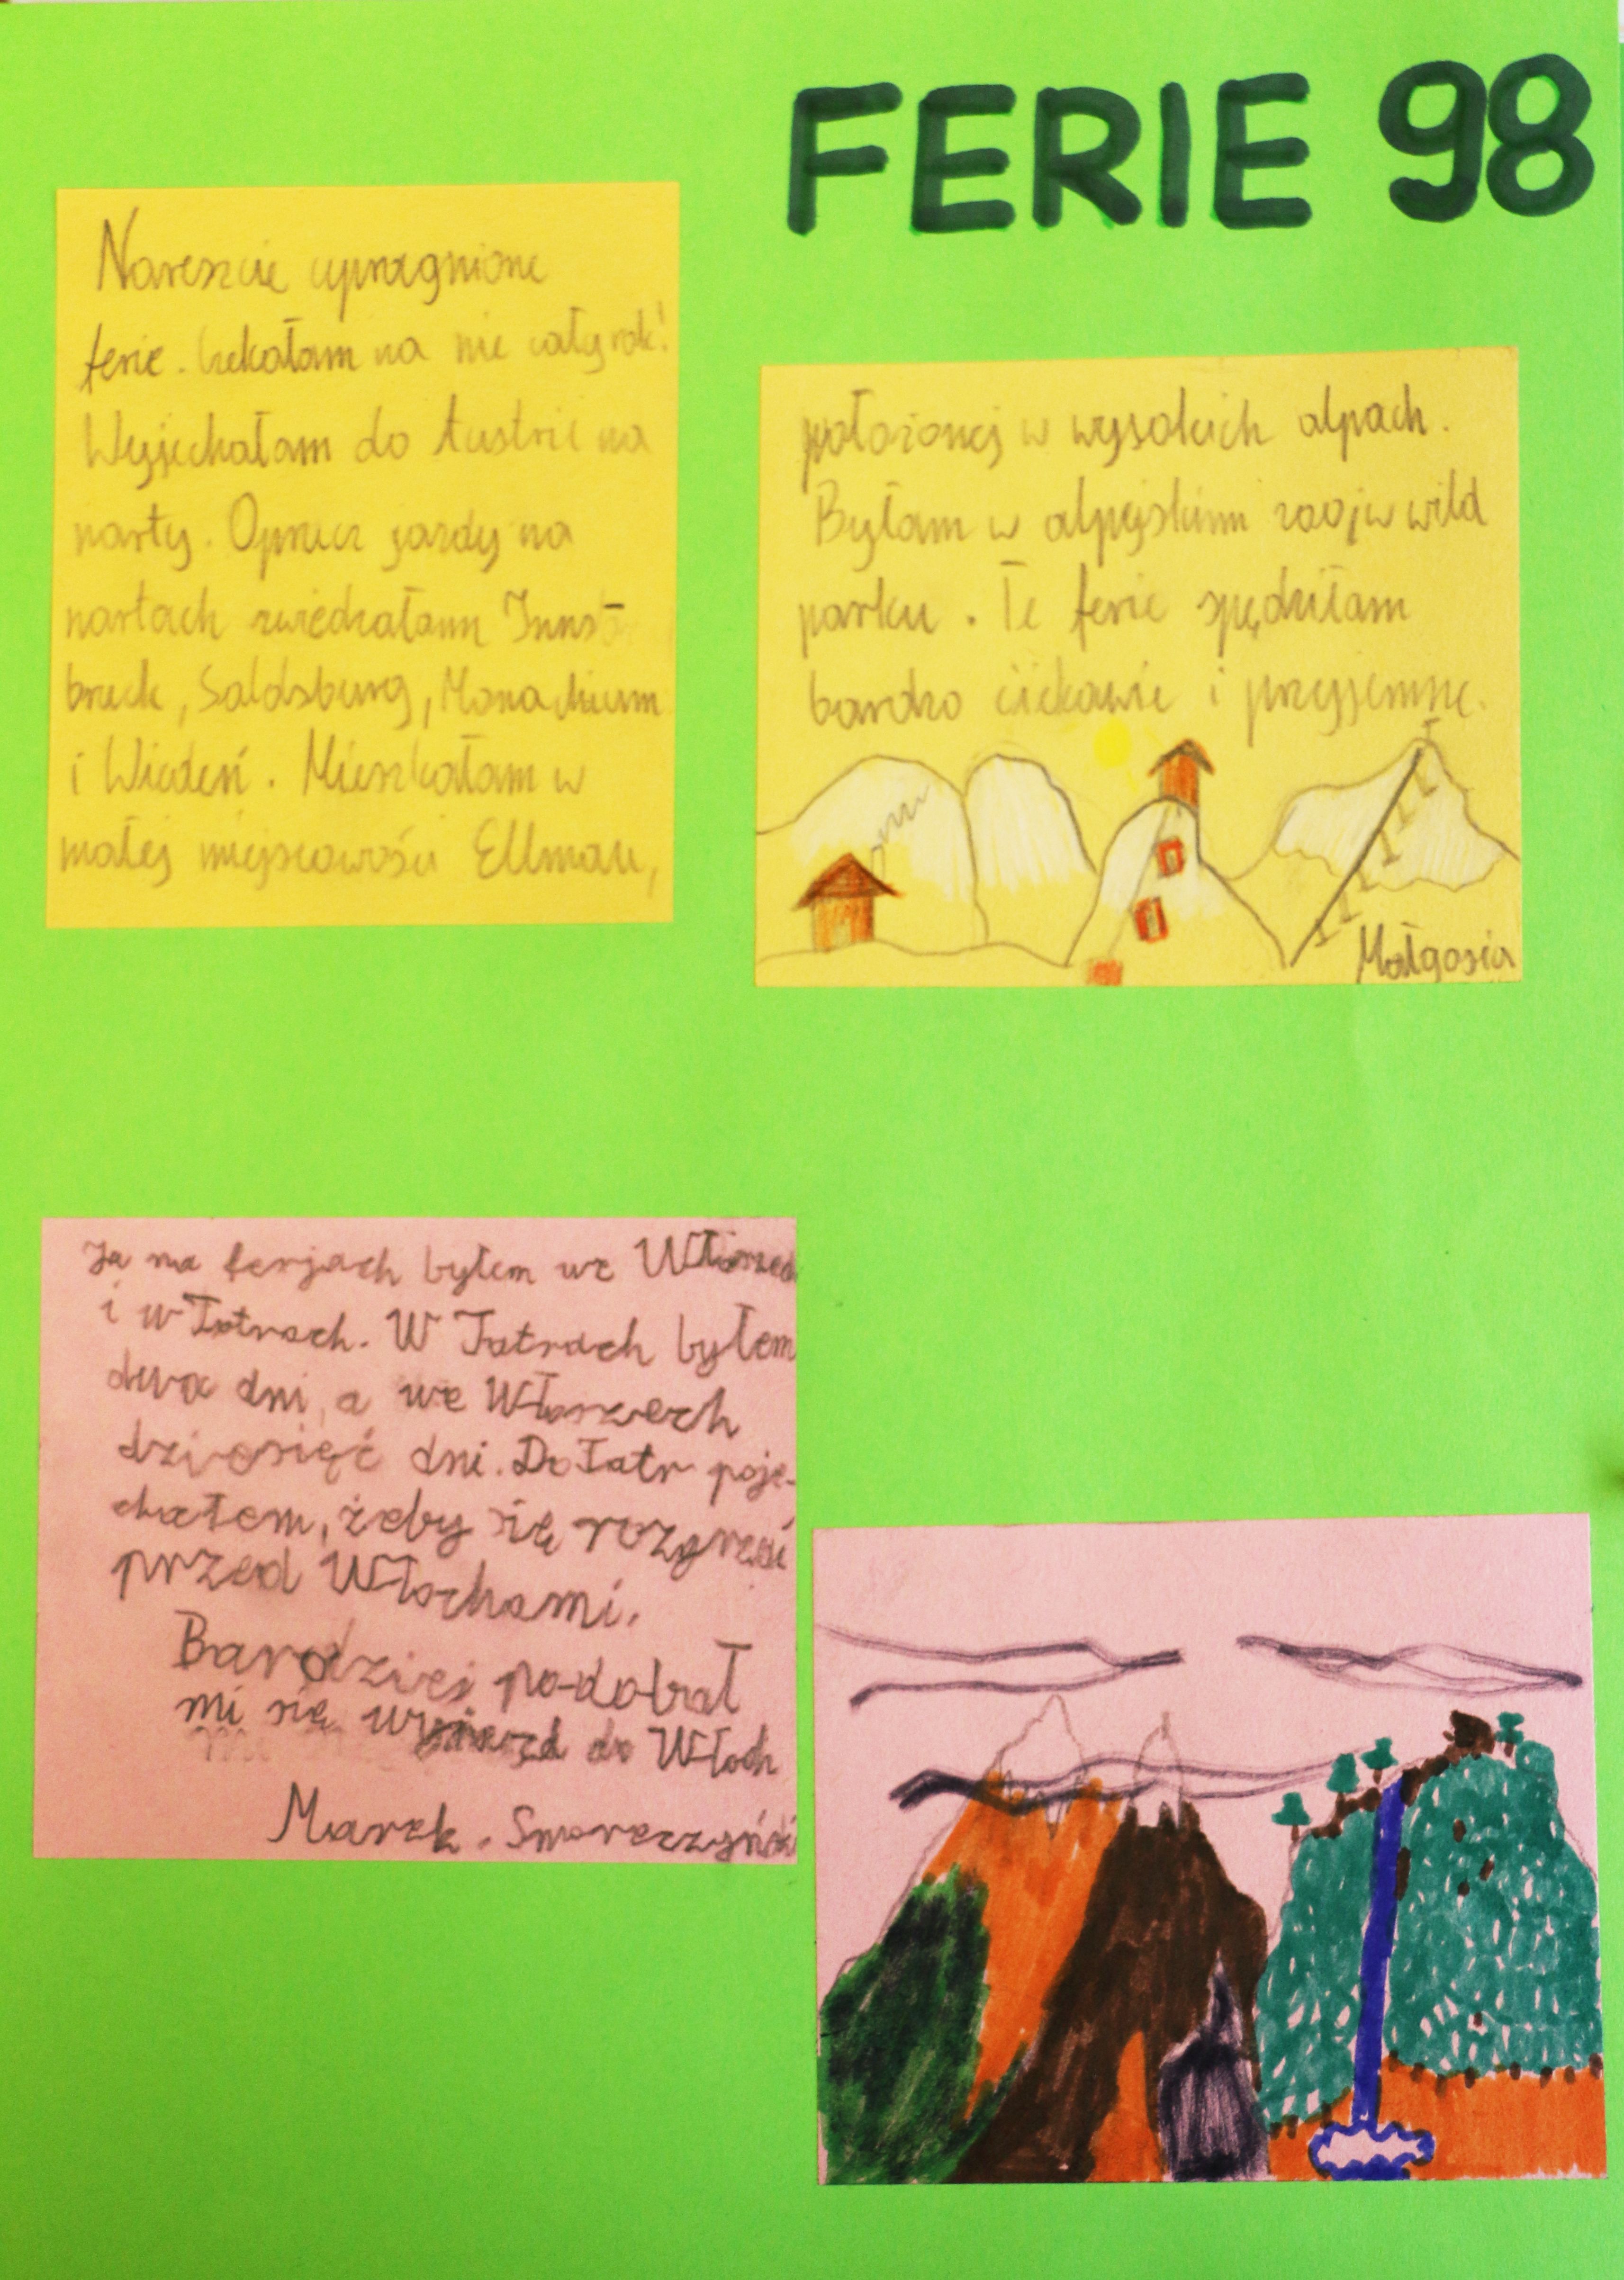 FERIE 98
Nareszcie upragnione
ferie. Czekałam na nie cały rok!
Wyjechałam do Austrii na
narty. Oprócz jazdy na
nartach zwiedzałam Inns-
bruck, Saldsburg, Monachium
i Wiedeń. Mieszkałam w
małej miejscowości Ellmau,
położonej w wysokich alpach.
Byłam w alpejskim zoo j w wild
parku. Te ferie spędziłam
bardzo ciekawie i przyjemnie.
Małgosia
Ja na ferjach byłem we Włoszech
i w Tatrach. W Tatrach byłem
dwa dni, a we Włoszech
dziesięć dni. Do Tatr poje-
chałem, żeby się rozgrzać
przed Włochami.
Bardziej podobał
mi się wyjazd do Włoch
Marek